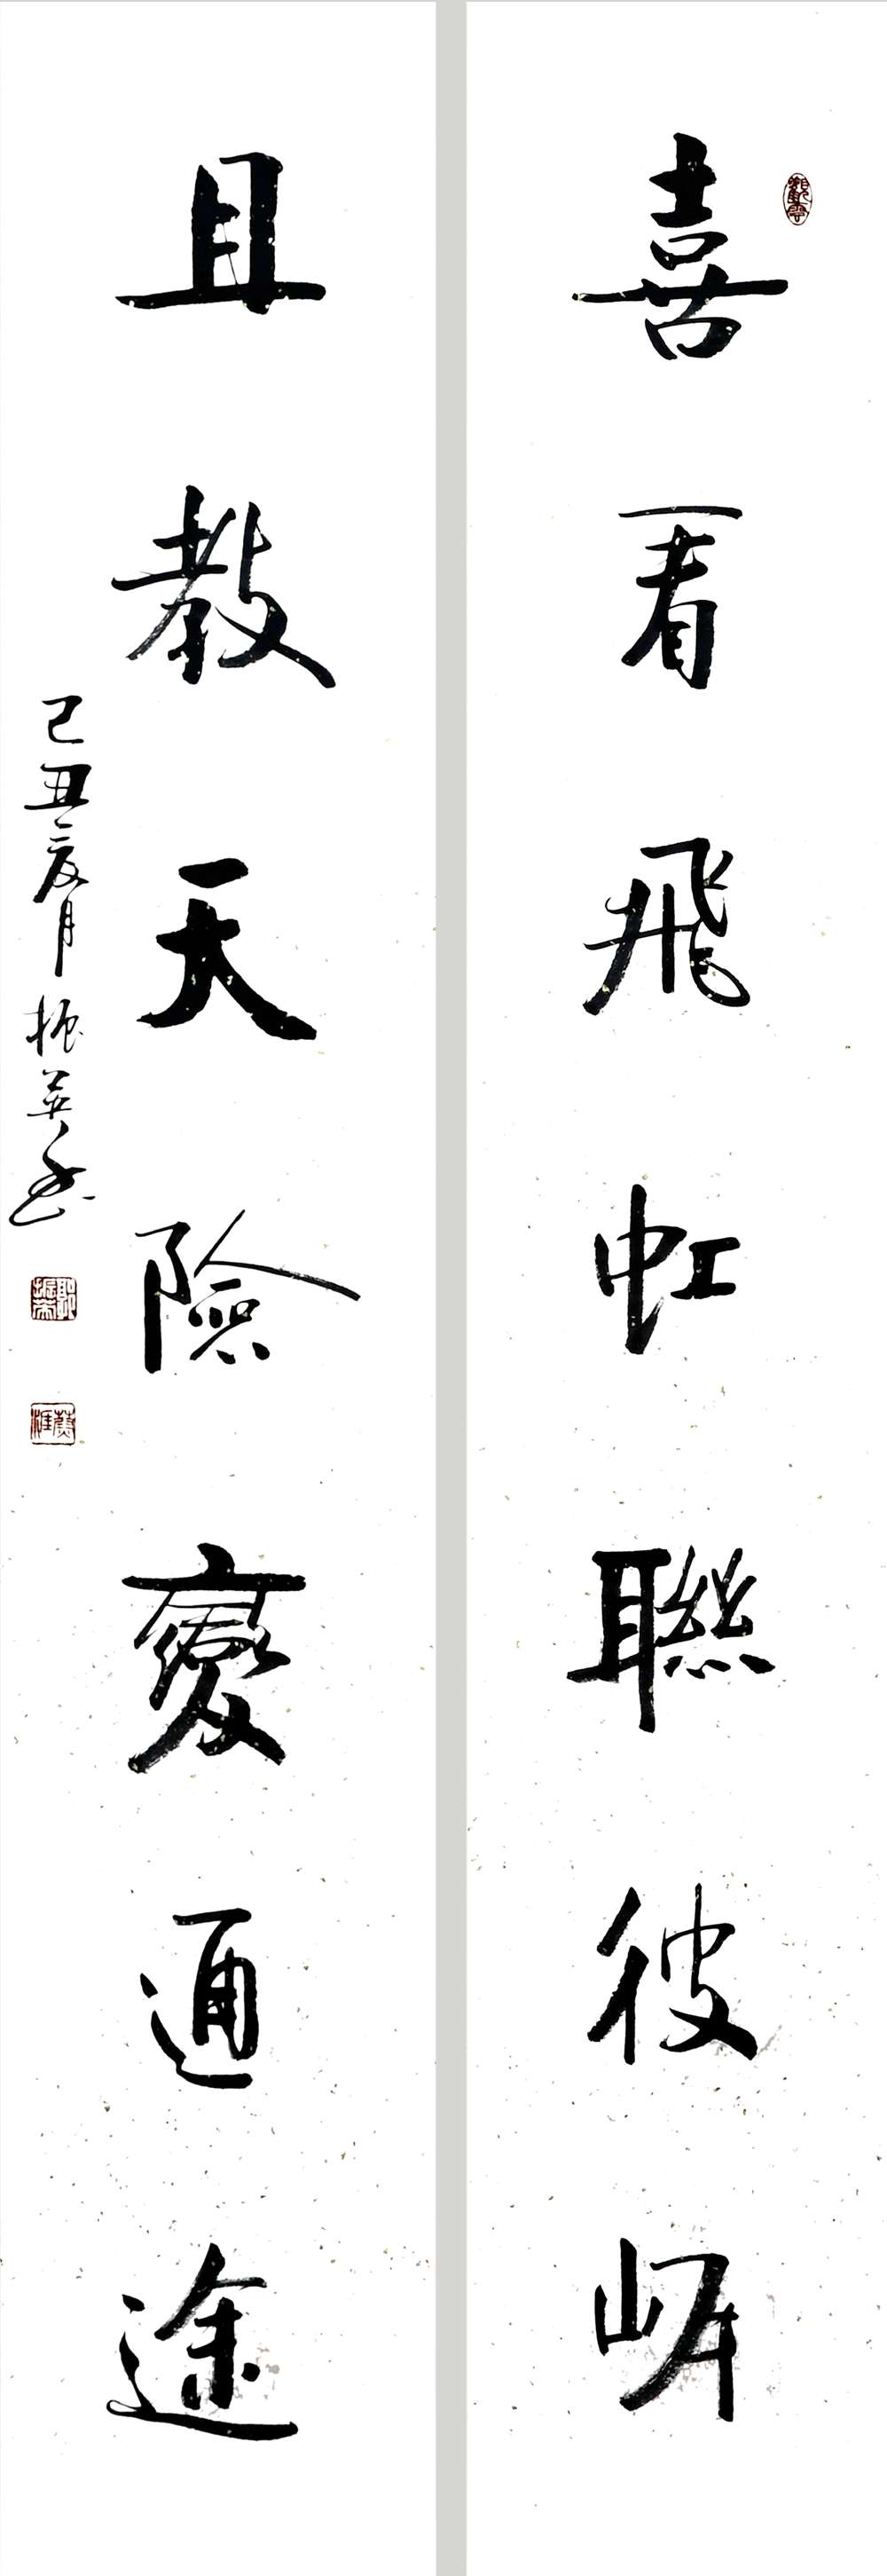 喜看飛虹聯彼岍
且教天險變通途
己丑夏月振英書